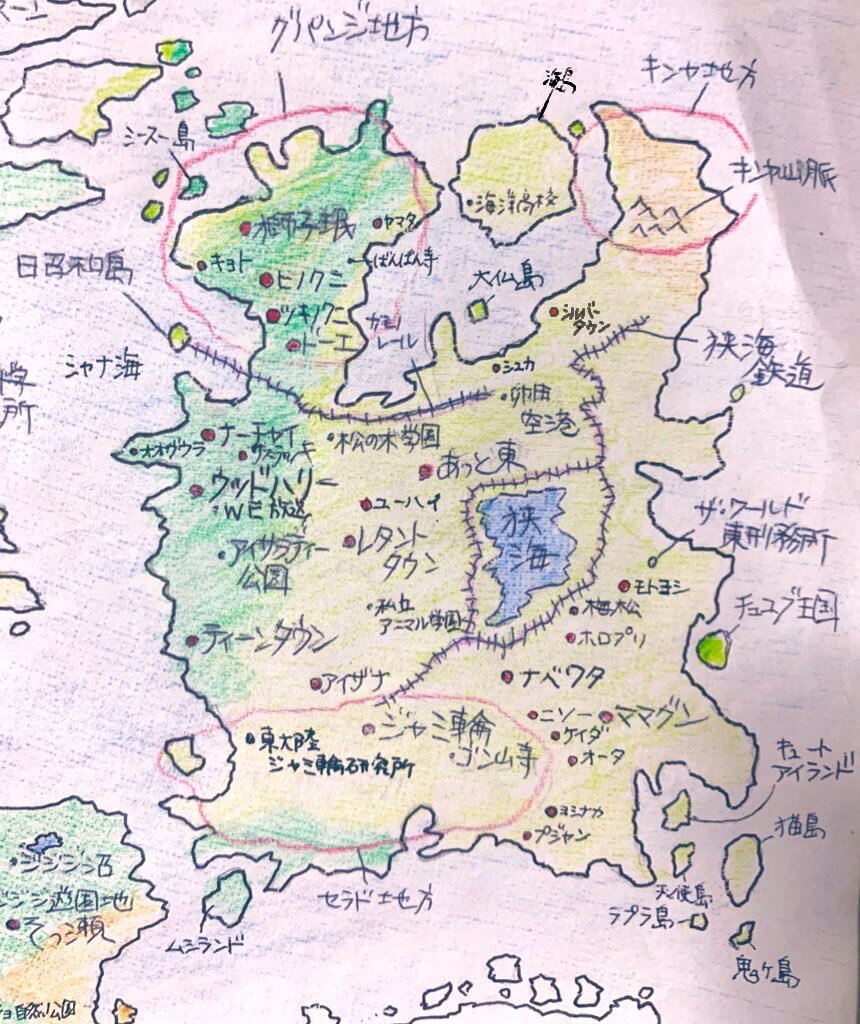 グリパンジ地方
キンヤ地方
シースー島
海洋高校
キンヤ山脈
獅子珉
ヤマタ
キョト
ばんばん寺
ヒノクニ
大仏島
ツキノクニ
シルバー
タウン
ドーエ
レール
シャナ海
シュカ
狭海
鉄道
卵田
空港
ナーエャイ
松の木学園
オオヴウラ
あっと東
ウッドハリー
WE放送
ユーハイ
狭
海
ザ・ワールド
東刑務所
アイサラティー
公園
レタント
タウン
モトヨシ
梅松
チュユブ王国
私立
アニマル学園
ホロプリ
ティーンタウン
アイザナ
ナベワタ
ニソー
ママグン
ジャミ輪
ケイダ
東大陸
ジャミ輪研究所
ゴン山寺
オータ
キュート
アイランド
ヨシナカ
プジャン
猫島
ジジジ沼
ジジ遊園地
そっ瀬
セラド地方
天使島
ラプラ島
ムシランド
鬼ヶ島
自然公園